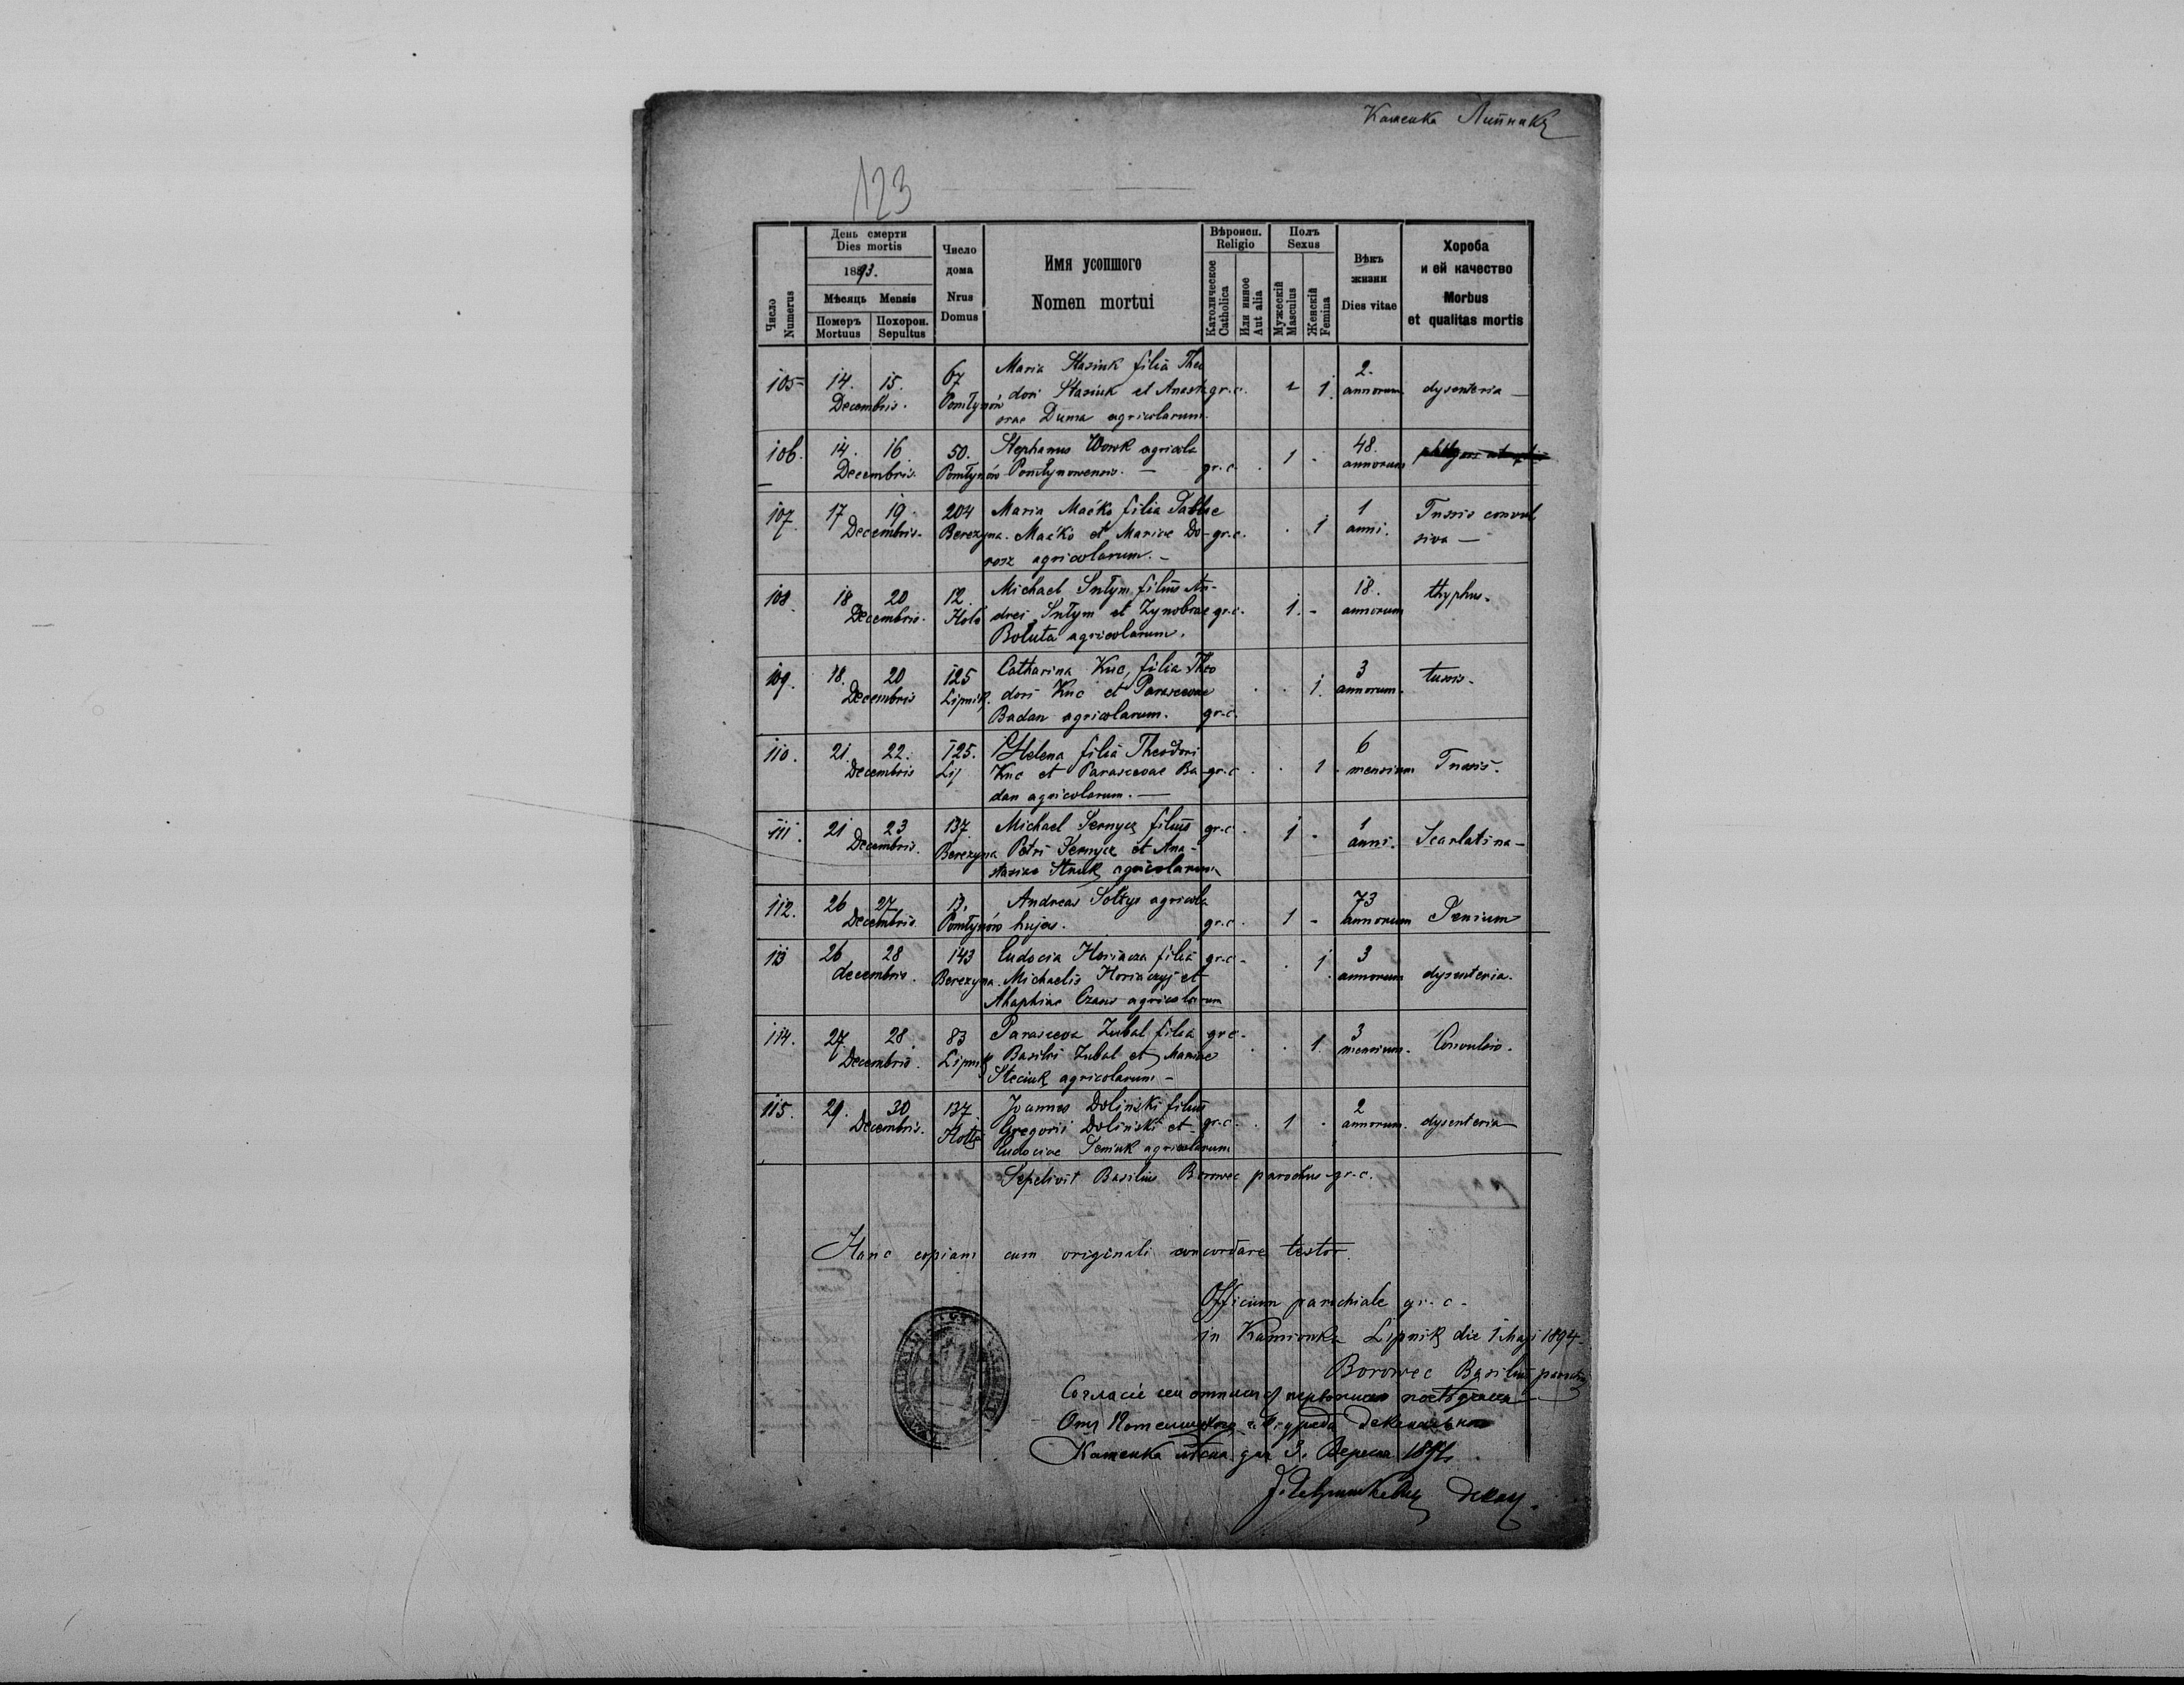 Каменка Липникъ
123
Число Numerus
День смерти Dies mortis
1893.
Мѣсяць Mensis
Померъ Mortuus
Похорон. Sepultus
Число дома Nrus Domus
Имя усопшого
Nomen mortui
Вѣроисп. Religio
Католическое Catholica
Или инное Aut alia
Полъ Sexus
Мужескій Masculus
Женскій Femina
Вѣкъ жизни Dies vitae
Хороба и ей качество
Morbus et qualitas mortis
105 14. 15. 67 Maria Stasiuk filia Theo 2.
Decembris. Pomłynów dori Stasiuk et Anast gr.c. 1. annorum dysenteria
Duma agricolarum.
106. 14. 16 50. Stephanus Wowk agricola 1 - 48.
Decembris. Pomłynów Pomłynowensis. gr.c. annorum
107. 17 19. 204 Maria Maćko filia 1 Tussis convul
Decembris. Berezyna. Maćko et Mariae Do- gr.c. 1 anni. siva
rosz agricolarum.
108. 18 20 12. Michael Sułym filius An- 18. thyphus.
Decembris. Hoło drei Sułym et Zynobiae gr.c. 1. - annorum
Boluta agricolarum.
109. 18. 20 125 Catharina Kuc, filia Theo 3 tussis.
Decembris Lipnik. dori Kuc et Parascevae 1. annorum.
Badan agricolarum. gr.c.
110. 21. 22. 125. Helena filia Theodori 6
Decembris Lip Kuc et Parascevae Ba- gr.c. 1. mensium Tussis.
dan agricolarum.
111. 21 23 137 Michael filius gr.c. 1 - 1
Decembris. Berezyna Petri et Ana- anni. Scarlatina
stasiae Struk agricolarum
112. 26 27 13. Andreas Sołtys agricola 73
Decembris. Pomłynów hujas. gr.c. 1 - annorum Senium
113 26 28 143 Eudocia Horiacza filia gr.c. 1 3
decembris. Berezyna. Michaelis Horiaczyj et annorum dysenteria.
Ahaphiae agricolarum
114. 27 28 83 Parasceva Zubal filia gr.c. 1. 3 Convulsio.
Decembris. Lipnik Basilii Zubal et Mariae mensium.
Steciuk agricolarum
115. 29. 30 137. Joannes Doliński filius 2
Decembris. Gregorii Doliński et gr.c. 1 . annorum. dysenteria
Eudociae Seniuk agricolarum
Sepelivit Basilius Borowec parochus gr.c.
Hanc copiam cum originali concordare testor.
Officium parochiale gr.c.
in Kamionka Lipnik die 1 Maji 1894
Borowec Basilius
Отъ
Каменка дня 3.
декан.